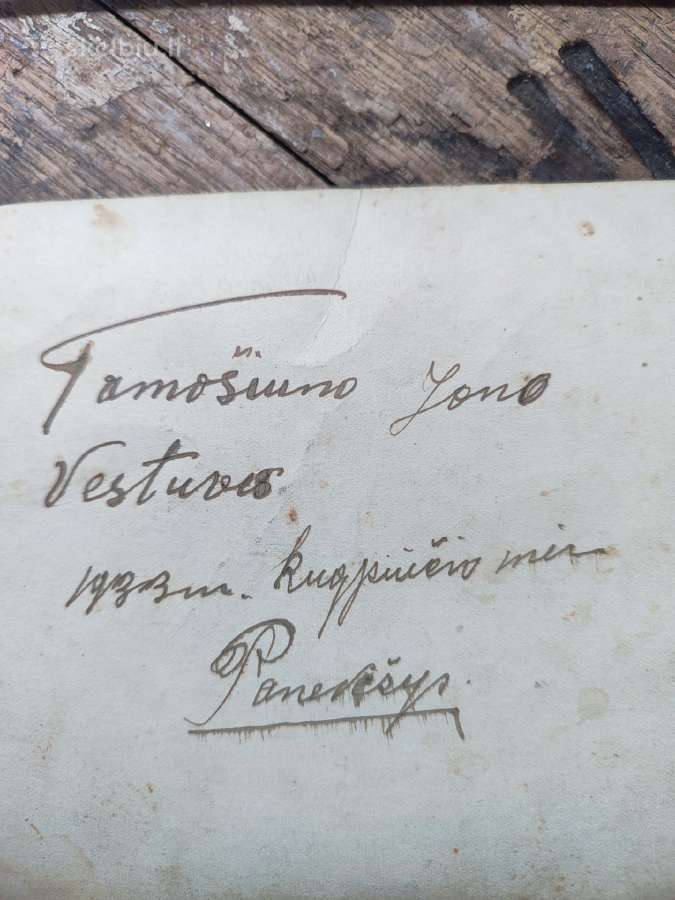 skelbiu.lt
Tamošiuno Jono
Vestuves
1933 m. Rugpiučio mėn
Panevėšys.